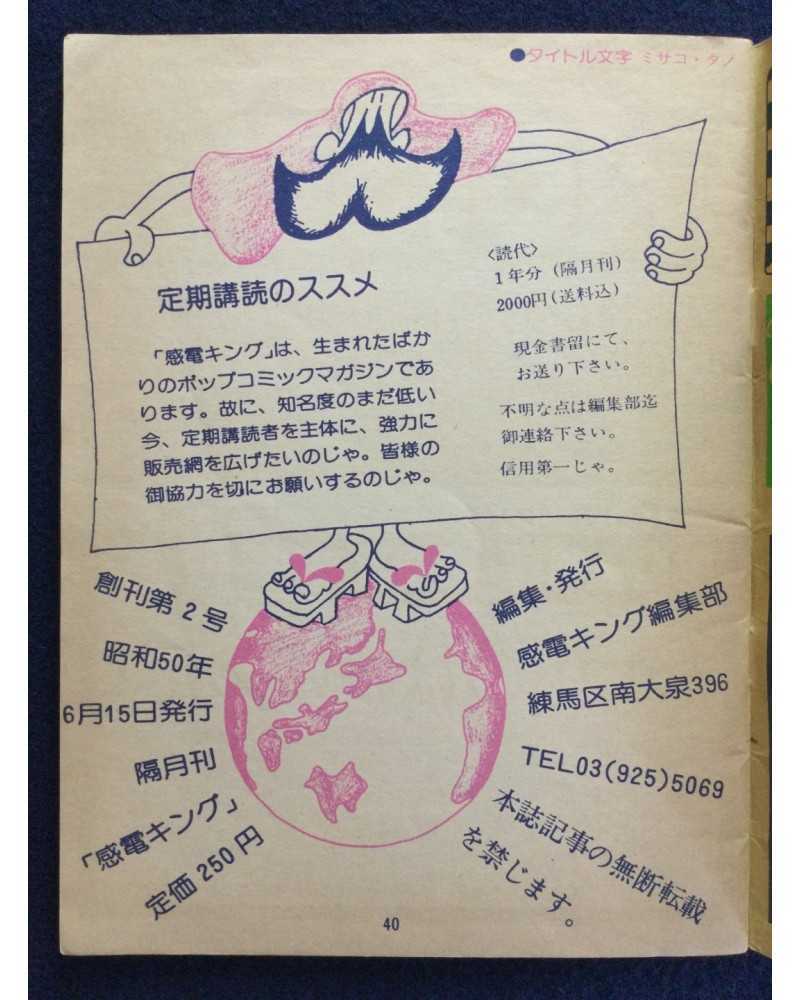 ●タイトル文字 ミサコ・タノ
定期講読のススメ
「感電キング」は、生まれたばか
りのポップコミックマガジンであ
ります。故に、知名度のまだ低い
今、定期講読者を主体に、強力に
販売網を広げたいのじゃ。皆様の
御協力を切にお願いするのじゃ。
〈読代〉
1年分(隔月刊)
2000円(送料込)
現金書留にて、
お送り下さい。
不明な点は編集部迄
御連絡下さい。
信用第一じゃ。
創刊第2号
昭和50年
6月15日発行
隔月刊
「感電キング」
定価250円
編集・発行
感電キング編集部
練馬区南大泉396
TEL03(925)5069
本誌記事の無断転載
を禁じます。
40